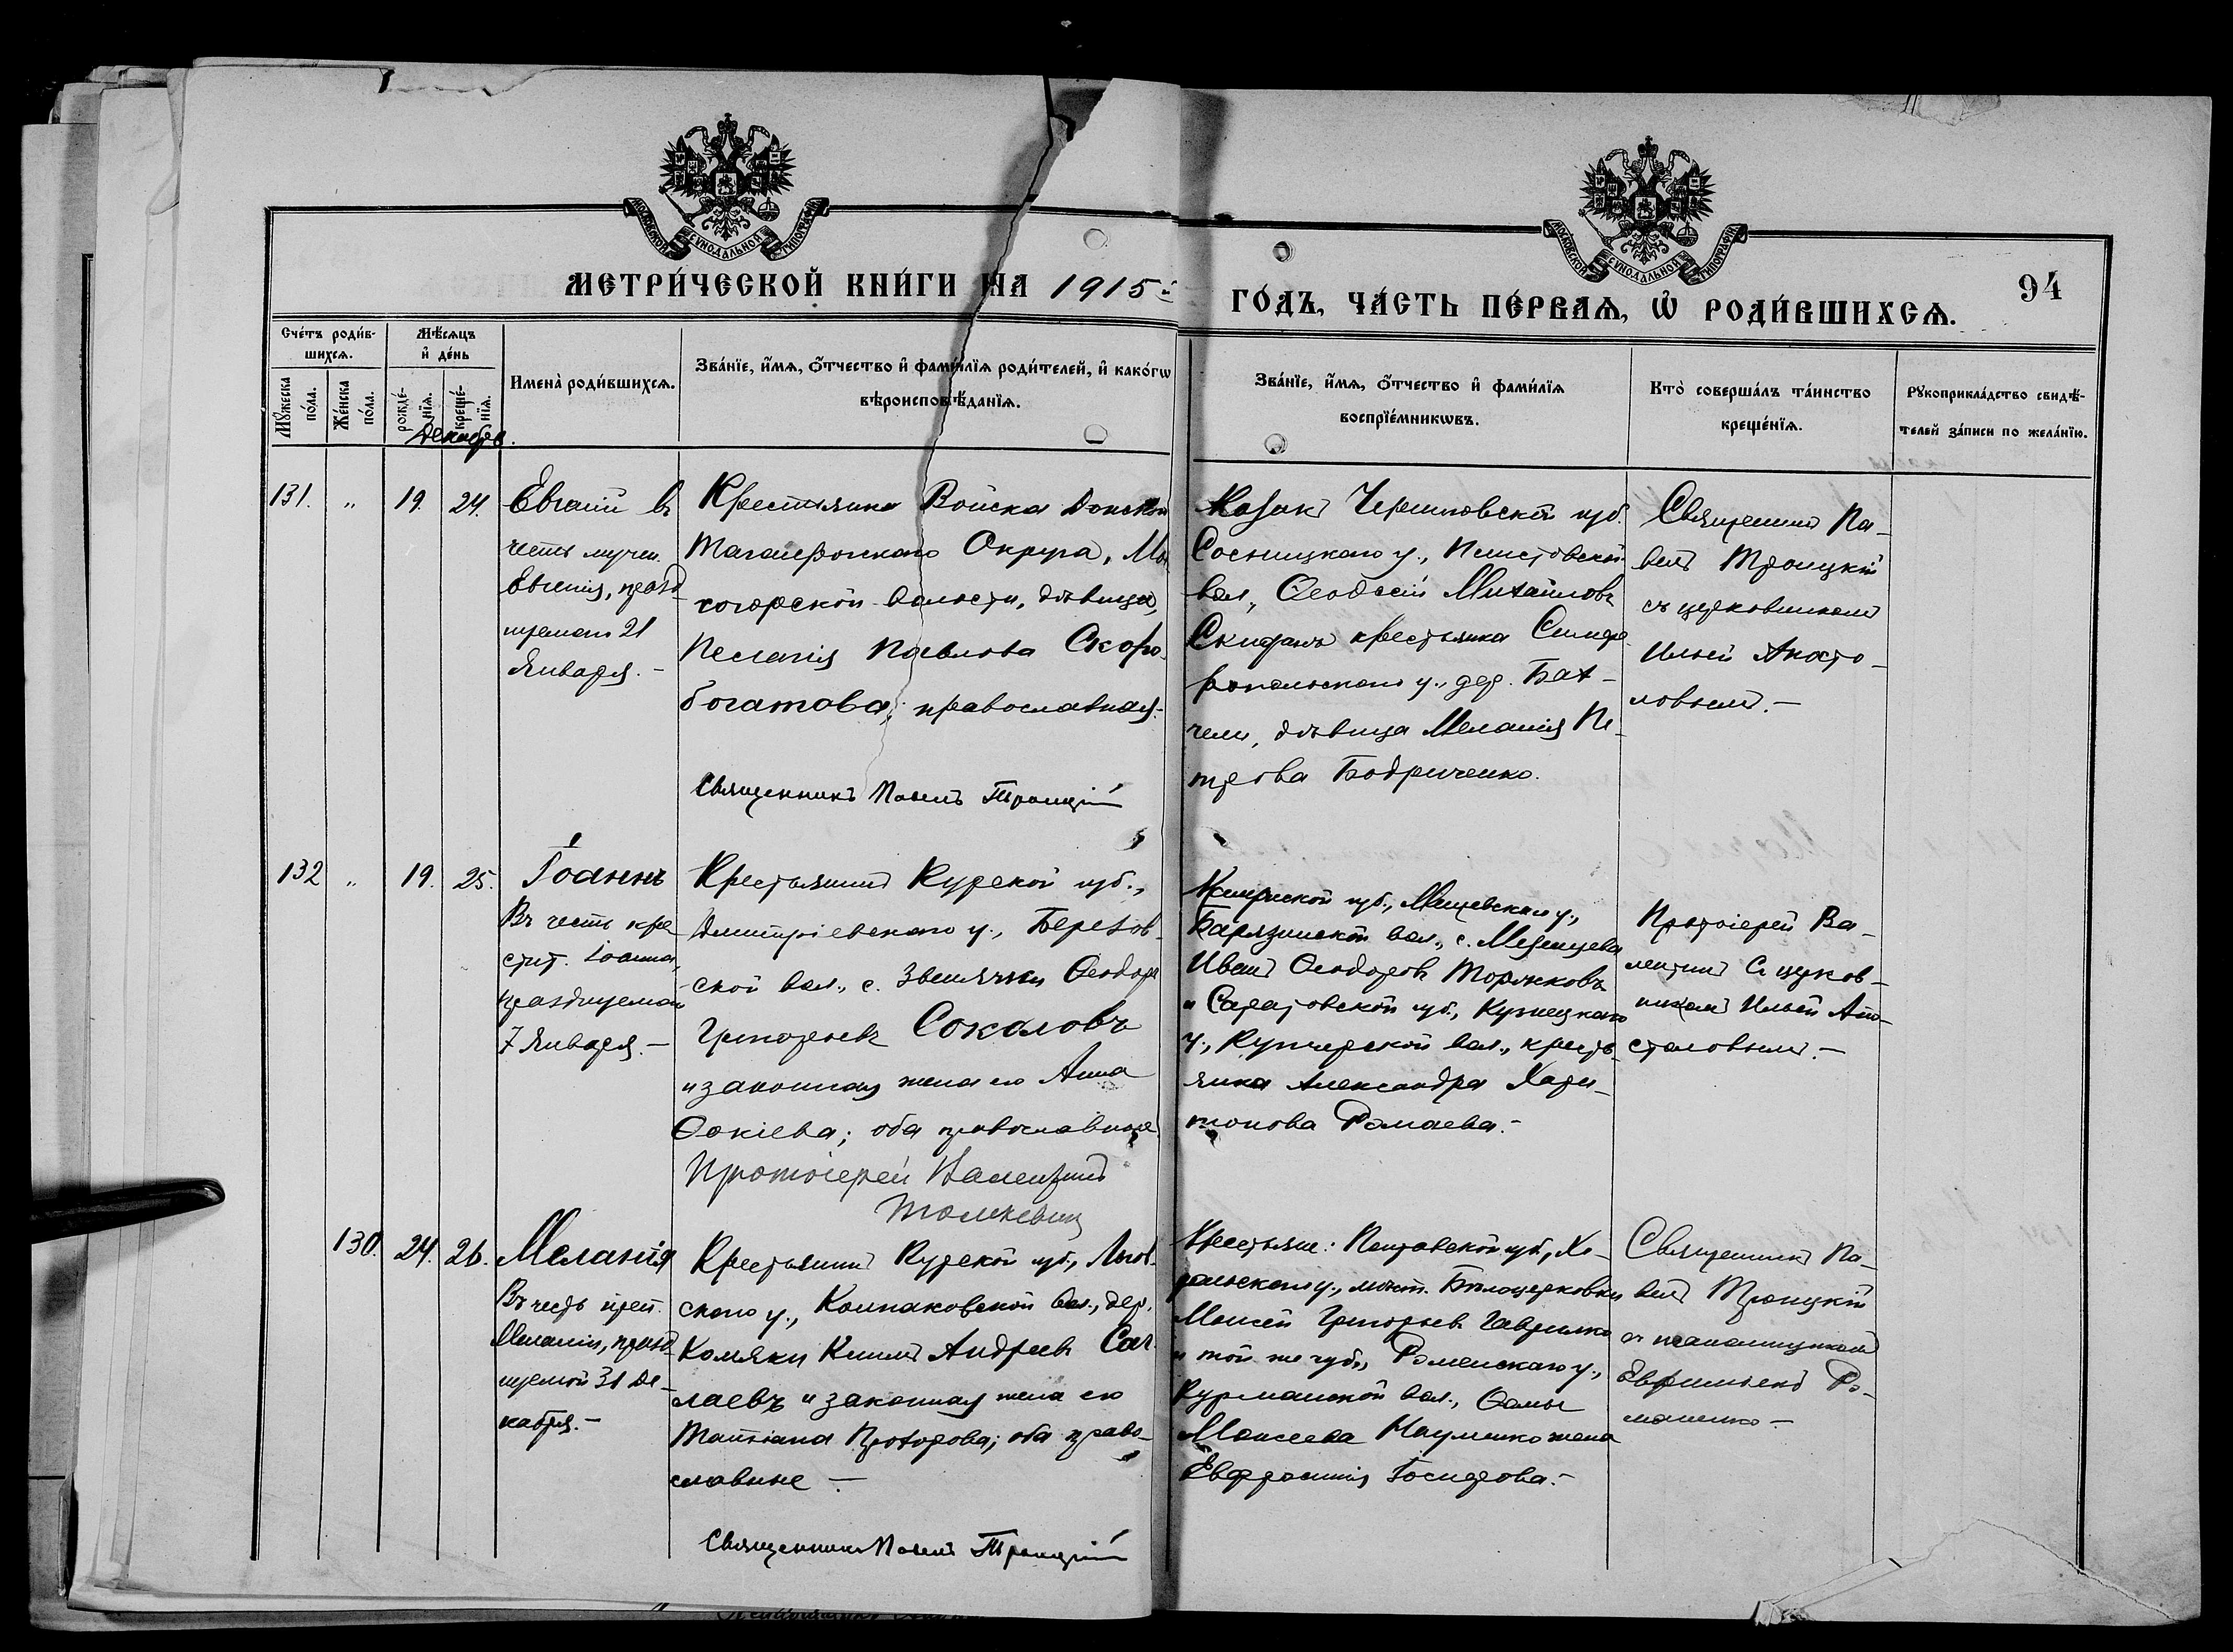 МОСКОВСКОЙ СѴНОДАЛЬНОЙ ТИПОГРАФІИ
МОСКОВСКОЙ СѴНОДАЛЬНОЙ ТИПОГРАФІИ
МЕТРИ́ЧЕСКОЙ КНИ́ГИ НА 1915 й
ГО́ДЪ, ЧА́СТЬ ПЕ́РВАѦ, Ѡ҆ РОДИ́ВШИХСѦ.
94
Сче́тъ роди́в-
шихсѧ.
Мꙋ́жеска по́ла.
Же́нска по́ла.
Мѣ́сѧцъ
и҆ де́нь
рожде́-
нїѧ.
креще́-
нїѧ.
Имена̀ роди́вшихсѧ.
Зва́нїе, и҆́мѧ, ѻ҆́тчество и҆ фами́лїѧ роди́телей, и҆ како́гѡ
вѣроисповѣ́данїѧ.
Зва́нїе, и҆́мѧ, ѻ҆́тчество и҆ фами́лїѧ
воспрїе́мникѡвъ.
Кто̀ соверша́лъ та́инство
креще́нїѧ.
Рꙋкоприкла́дство свидѣ́-
телей за́писи по жела́нїю.
Декабрь.
131. " 19. 24.
Евгеній въ
честь мучен.
Евгенія, празд
нуемаго 21
Января. -
Крестьянка Войска Донской
Таганрогскаго Округа,
волости, дѣвица,
Пелагія Павлова Скоро-
богатова; православная.
Священникъ Павелъ Троицкій
Казакъ Черниговской губ.
Сосницкаго у.,
вол., Ѳеодосій Михайловъ
крестьянка Симфе-
ропольскаго у., дер. Бах-
чели, дѣвица Меланія Пе-
трова Бодриченко.
Священникъ Па-
велъ Троицкій
съ церковникомъ
Ильей Апосто-
ловымъ. -
132 " 19. 25.
Іоаннъ
Въ честь кре
стит. Іоанна,
празднуемаго
7 Января. -
Крестьянинъ Курской губ.,
Дмитріевскаго у., Березов-
ской вол., с. Звенячки Ѳеодоръ
Григорьевъ Соколовъ
и законная жена его Анна
Ѳокіева; оба православные
Протоіерей Валентинъ
губ., Мещевскаго у.,
вол., с. Мезенцева
Иванъ Ѳеодоровъ Торжковъ
и Саратовской губ., Кузнецкаго
у., вол., кресть-
янка Александра Хари-
тонова Ромаева. -
Протоіерей Ва-
лентинъ съ церков-
никомъ Ильей Апо-
столовымъ. -
130. 24. 26.
Меланія
Въ честь преп.
Меланіи, празд
нуемой 31 Де-
кабря. -
Крестьянинъ Курской губ., Льгов-
скаго у., Колпаковской вол., дер.
Комяки Климъ Андреевъ Сач-
лаевъ и законная жена его
Татіана Прохорова; оба право-
славные -
Священникъ Павелъ Троицкій
Крестьяне: Полтавской губ., Хо-
рольскаго у., мѣст. Бѣлоцерковки
Моисей Григорьевъ Гаврилко
и той же губ., Роменскаго у.,
вол., Ѳомы
Моисеева Науменко жена
Евфросинія
Священникъ Па-
велъ Троицкій
съ псаломщикомъ
Ро-
маненко -